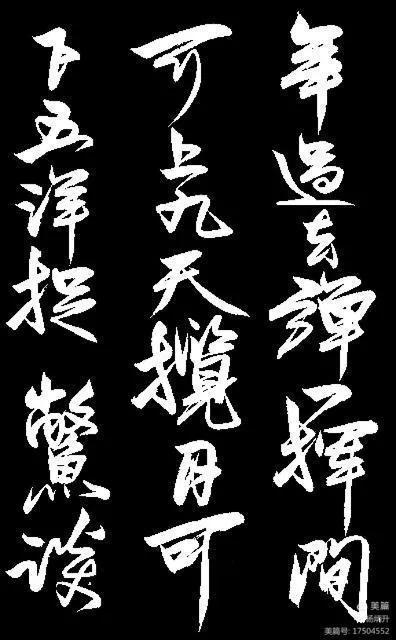 年過去彈一揮間
可上九天攬月可
下五洋捉鱉談
美篇
美篇号: 17504552